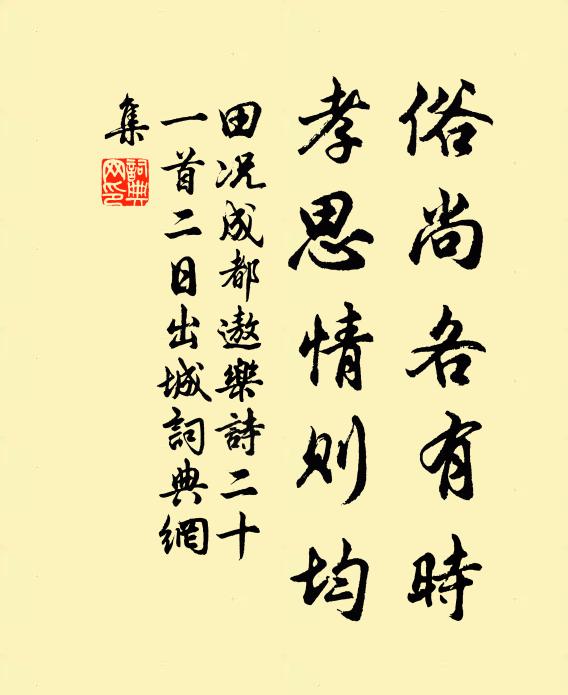 俗尚各有時
孝思情則均
田況成都遨樂詩二十
一首二日出城詞典網
集
詞典
网印